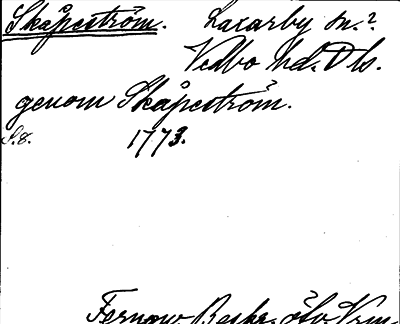 Skåpeström. Laxarby sn.?
Vedbo hd. Dls.
genom Skåpeström.
S. 8. 1773.
Fernow Beskr. öfv. Vrm.